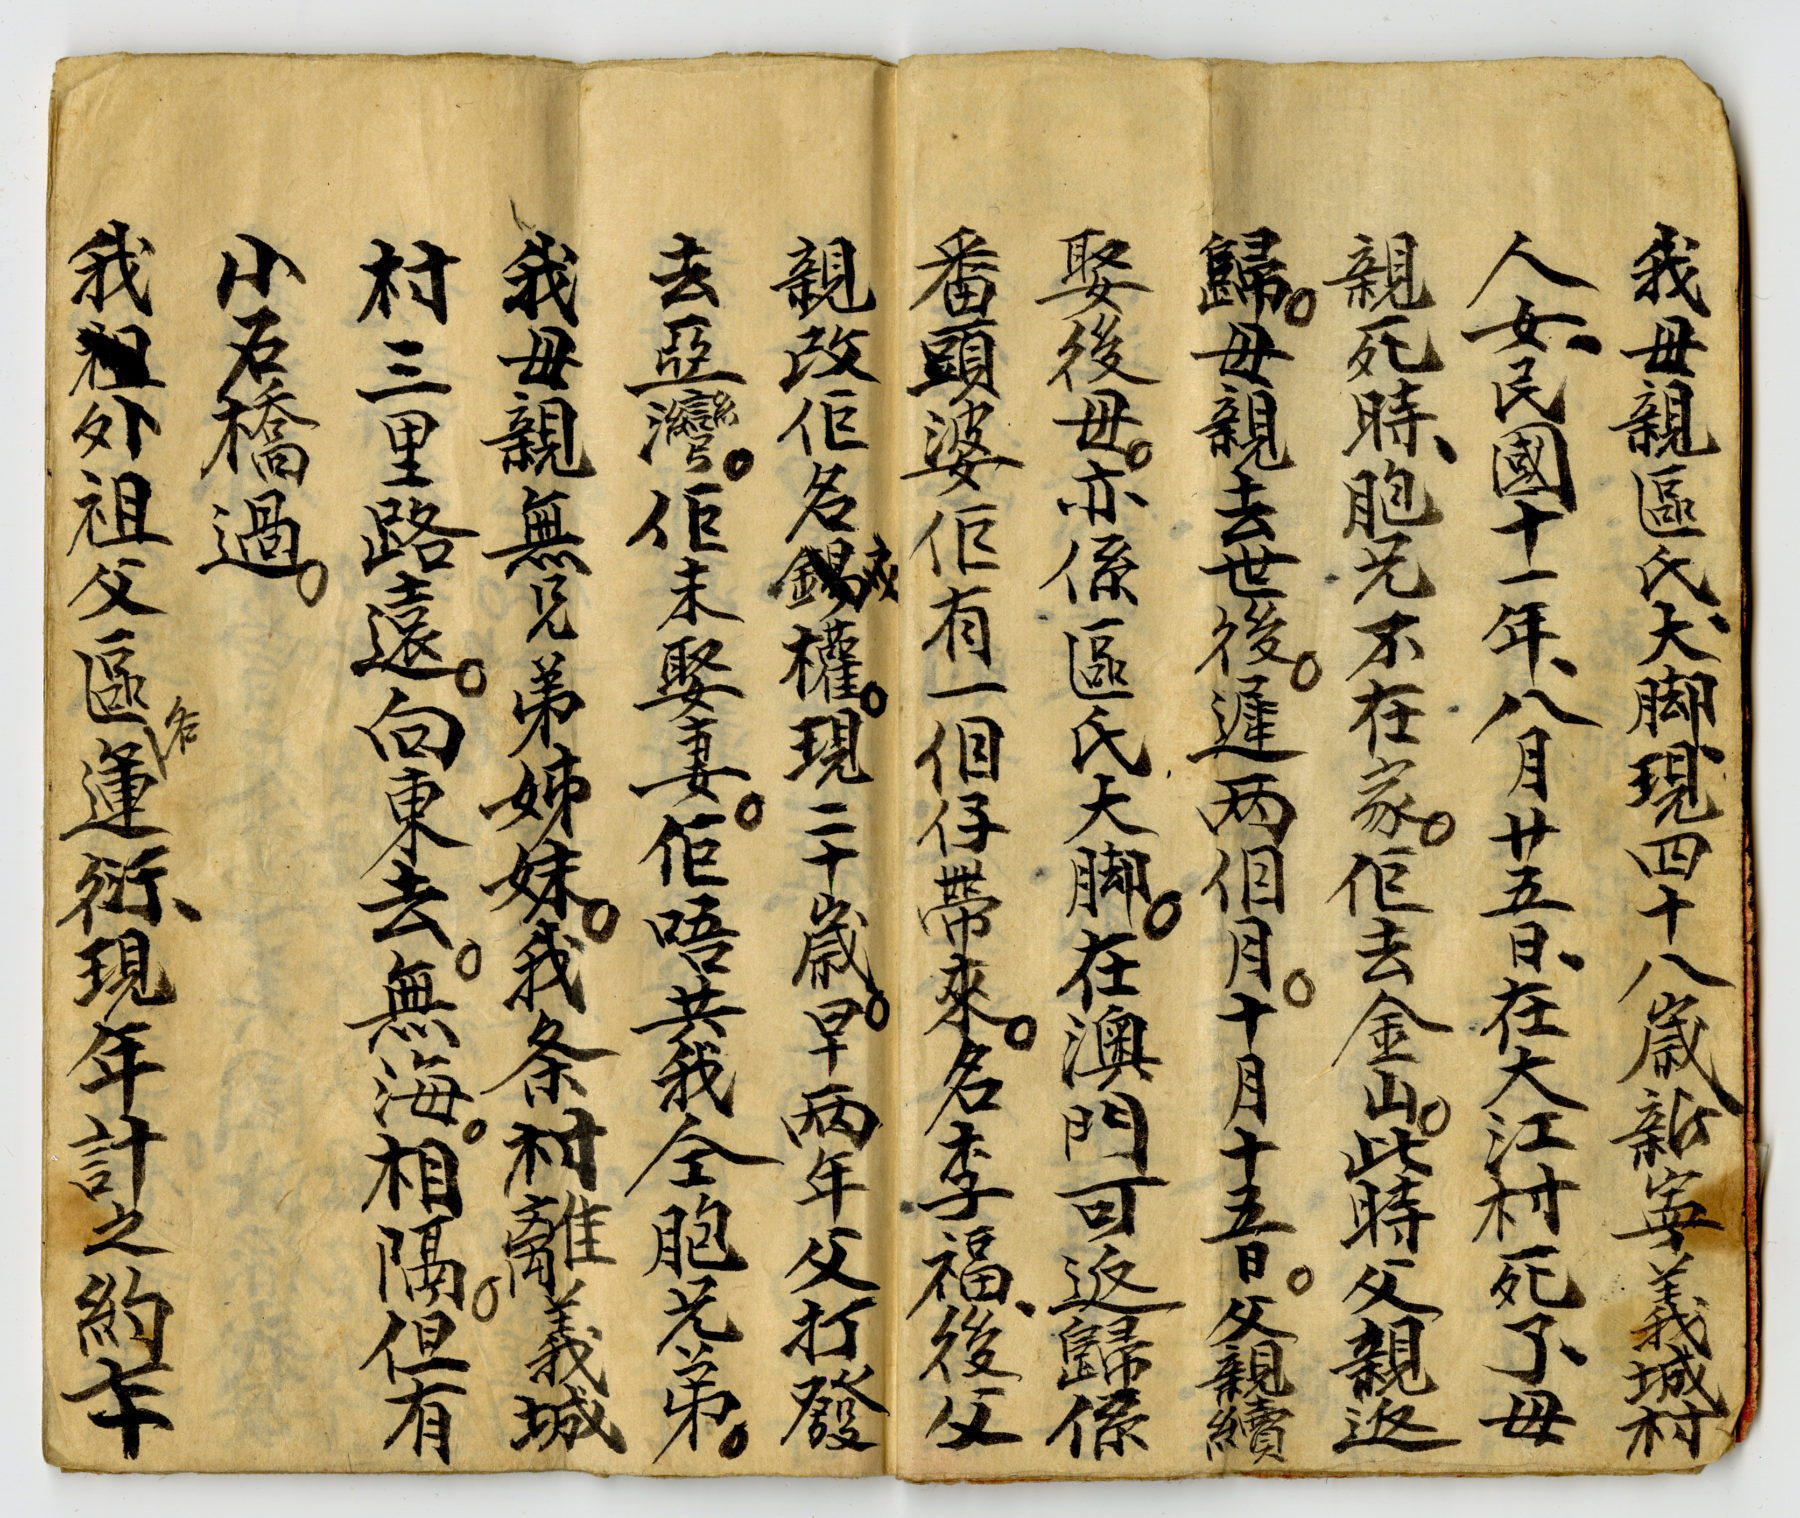 我毋親區氏、大脚、現四十八歲新寧義城村
人女、民國十一年、八月廿五日、在大江村死了、毋
親死時、胞兄不在家。佢去金山。此時父親返
歸。毋親去世後。遲両個月。十月十五日。父親續
娶後毋。亦係區氏大脚。在澳門可返歸係
番頭婆佢有一個仔帶來。名李福、後父
親改佢名錫權。現二十歲。早両年父打發
去亞灣。佢未娶妻。佢唔共我仝胞兄弟。
我毋親無兄弟姊妹。我条村離義城
村三里路遠。向東去。無海。相隔。但有
小石橋過。
我祖外祖父區名運衍、現年計之約七十